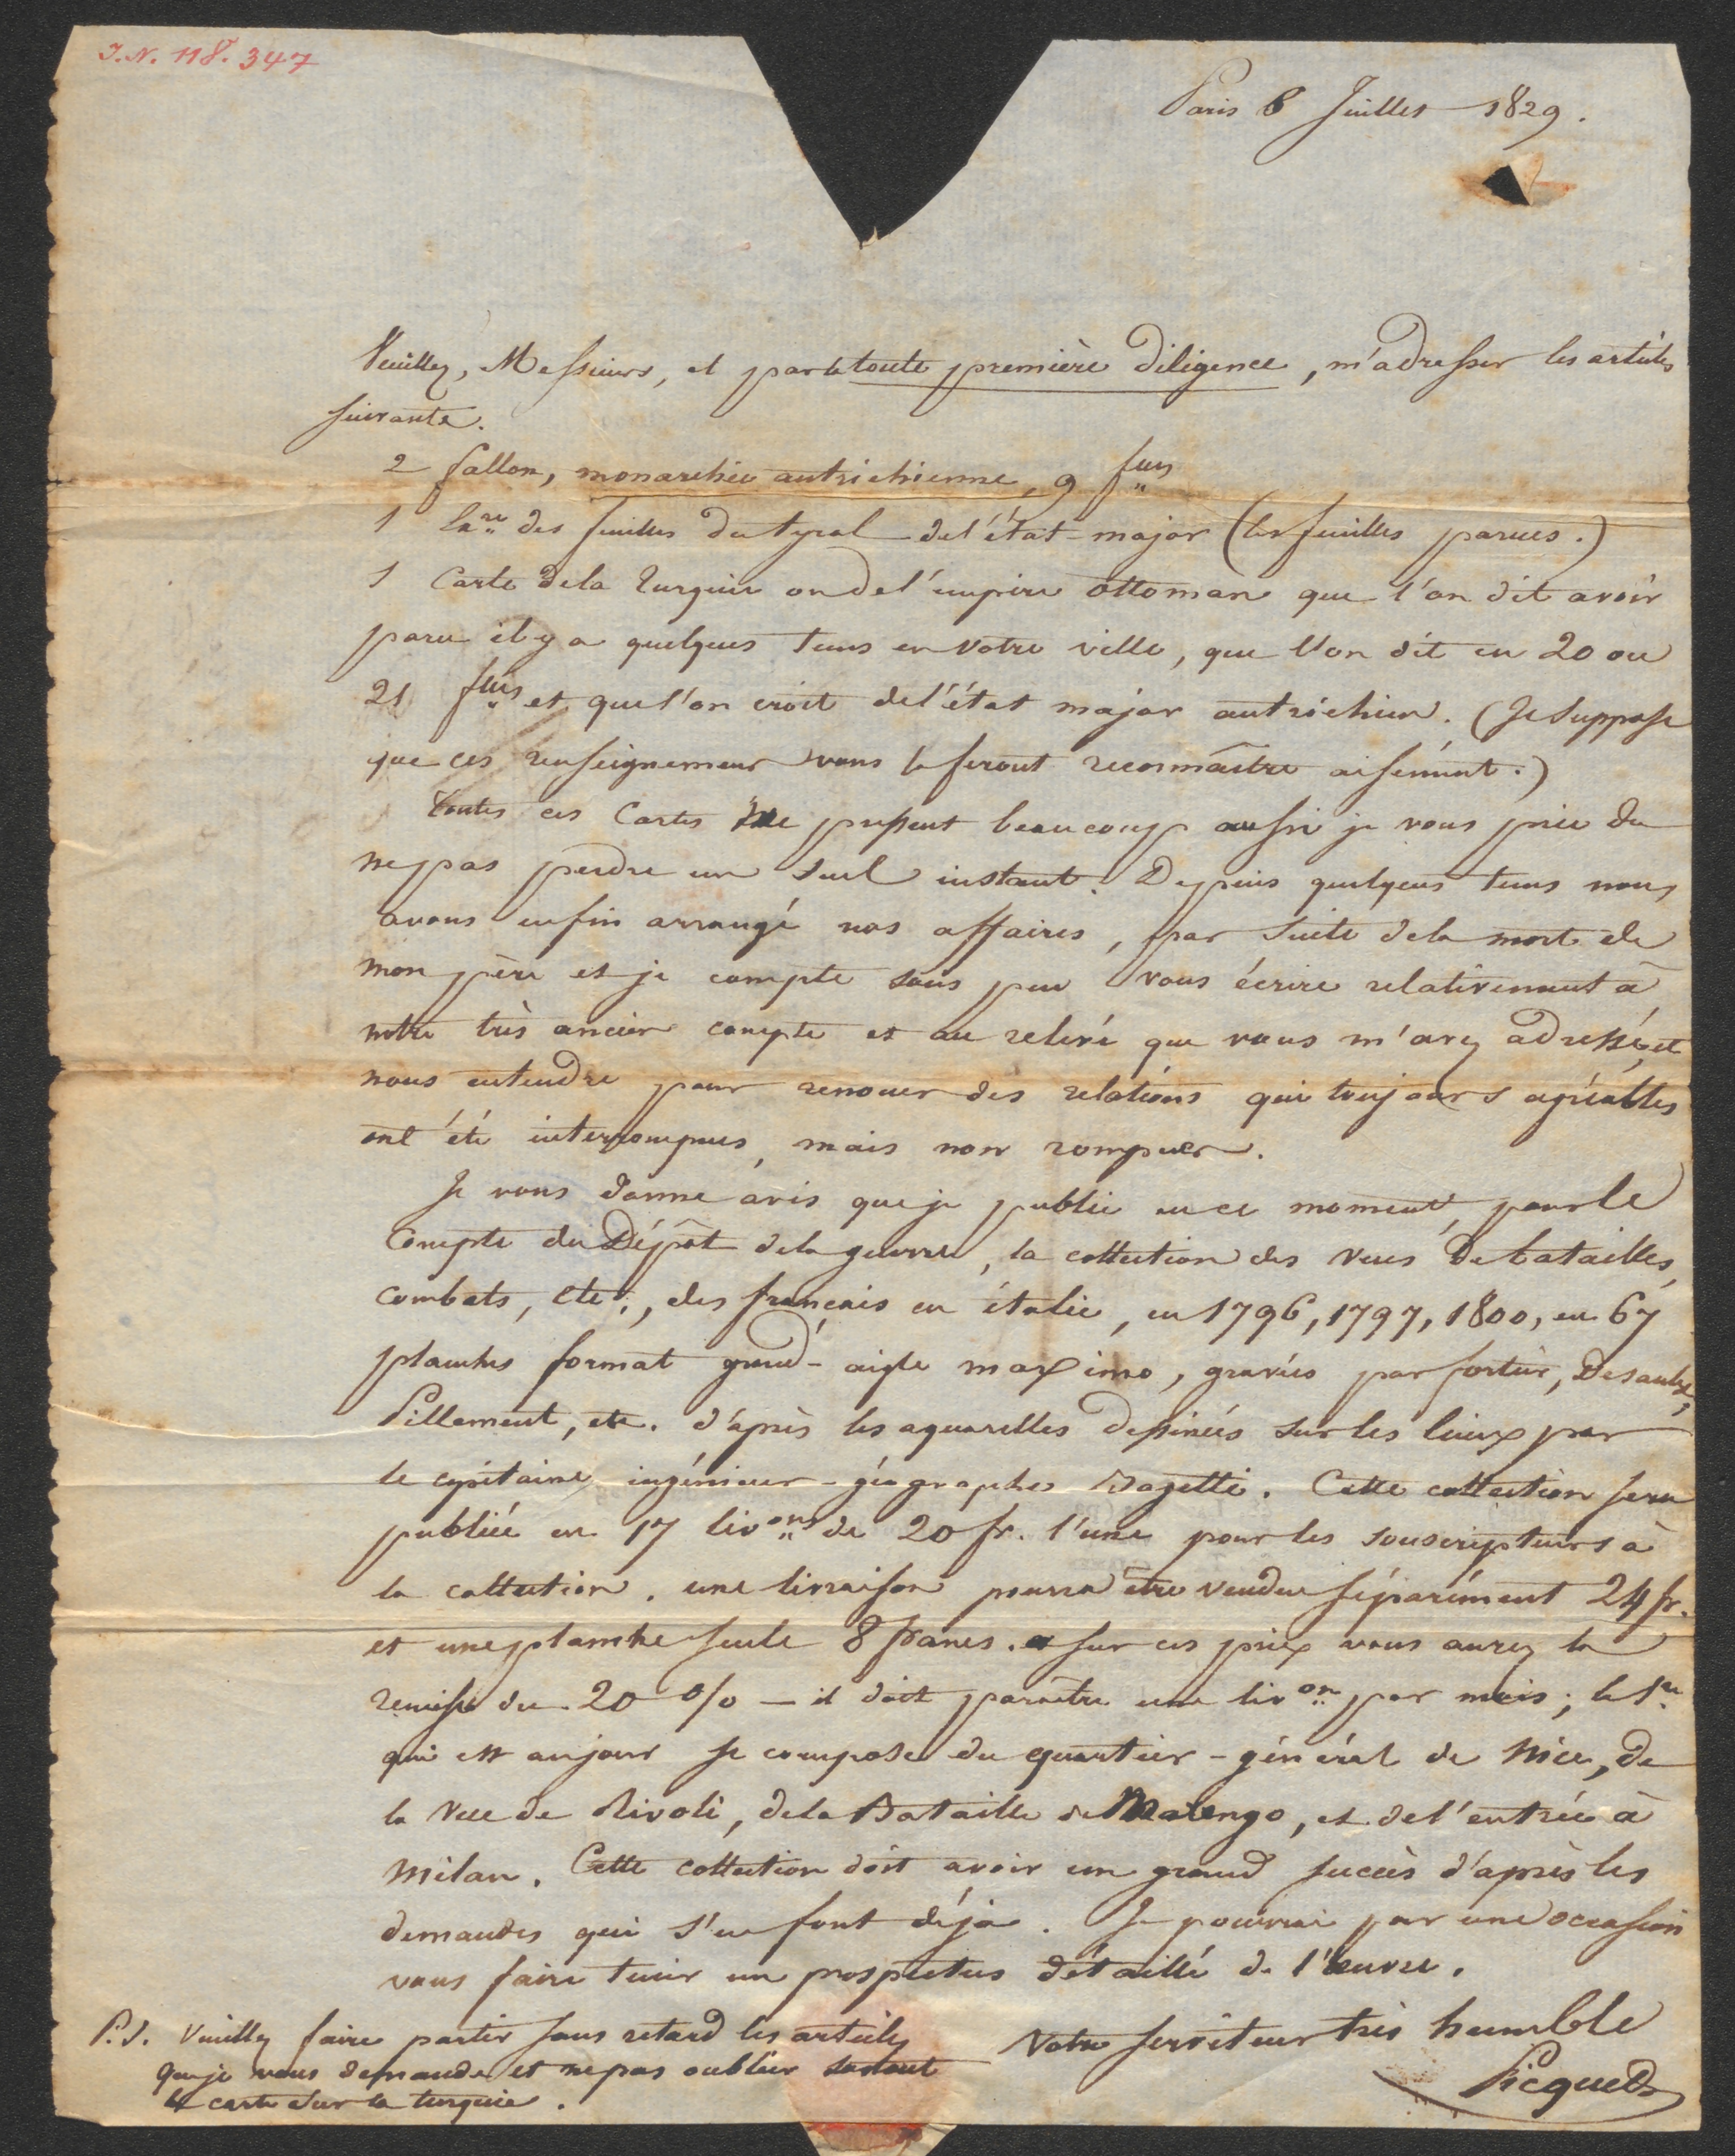 I.N. 118.347
Paris 6 Juillet 1829.
Veuillez, Messieurs, et par la toute première diligence, m'adresser les articles
suivants.
2 fallon, monarchie autrichienne, 9 flles
1 des feuilles du tyrol de l'état-major (les feuilles parues.)
1 Carte de la Turquie ou de l'empire ottoman que l'on dit avoir
paru il y a quelques tems en votre ville, que l'on dit en 20 ou
21 flles et que l'on croit de l'état major autrichien. (Je suppose
que ces renseignemens vous la feront reconnaître aisément.)
Toutes ces Cartes me pressent beaucoup aussi je vous prie de
ne pas perdre un seul instant. Depuis quelques tems nous
avons enfin arrangé nos affaires, par suite de la mort de
mon père et je compte sous peu vous écrire relativement à
notre très ancien compte et au relevé que vous m'avez adressé, et
nous entendre pour renouer des relations qui toujours agréables
ont été interrompues, mais non rompues.
Je vous donne avis que je publie en ce moment, pour le
Compte du Dépôt de la guerre, la collection des vues de batailles,
combats, etc., des français en italie, en 1796, 1797, 1800, en 67
planches format grand-aigle maximo, gravées par fortier, Desaulx,
Pillement, etc. d'après les aquarelles dessinées sur les lieux par
le capitaine ingénieur-géographe Bagetti. Cette collection sera
publiée en 17 livons de 20 fr. l'une pour les souscripteurs à
la collection. une livraison pourra être vendue séparément 24 fr.
et une planche seule 8 francs. sur ces prix vous aurez la
remise de 20 % — il doit paraître une livon par mois; la 1re
qui est au jour se compose du quartier-général de Nice, de
la vue de Rivoli, de la Bataille de Marengo, et de l'entrée à
Milan. Cette collection doit avoir un grand succès d'après les
demandes qui s'en font déjà. Je pourrai par une occasion
vous faire tenir un prospectus détaillé de l'œuvre.
Votre serviteur très humble
Picquet
P.S. Veuillez faire partir sans retard les articles
que je vous demande et ne pas oublier surtout
la carte sur la turquie.